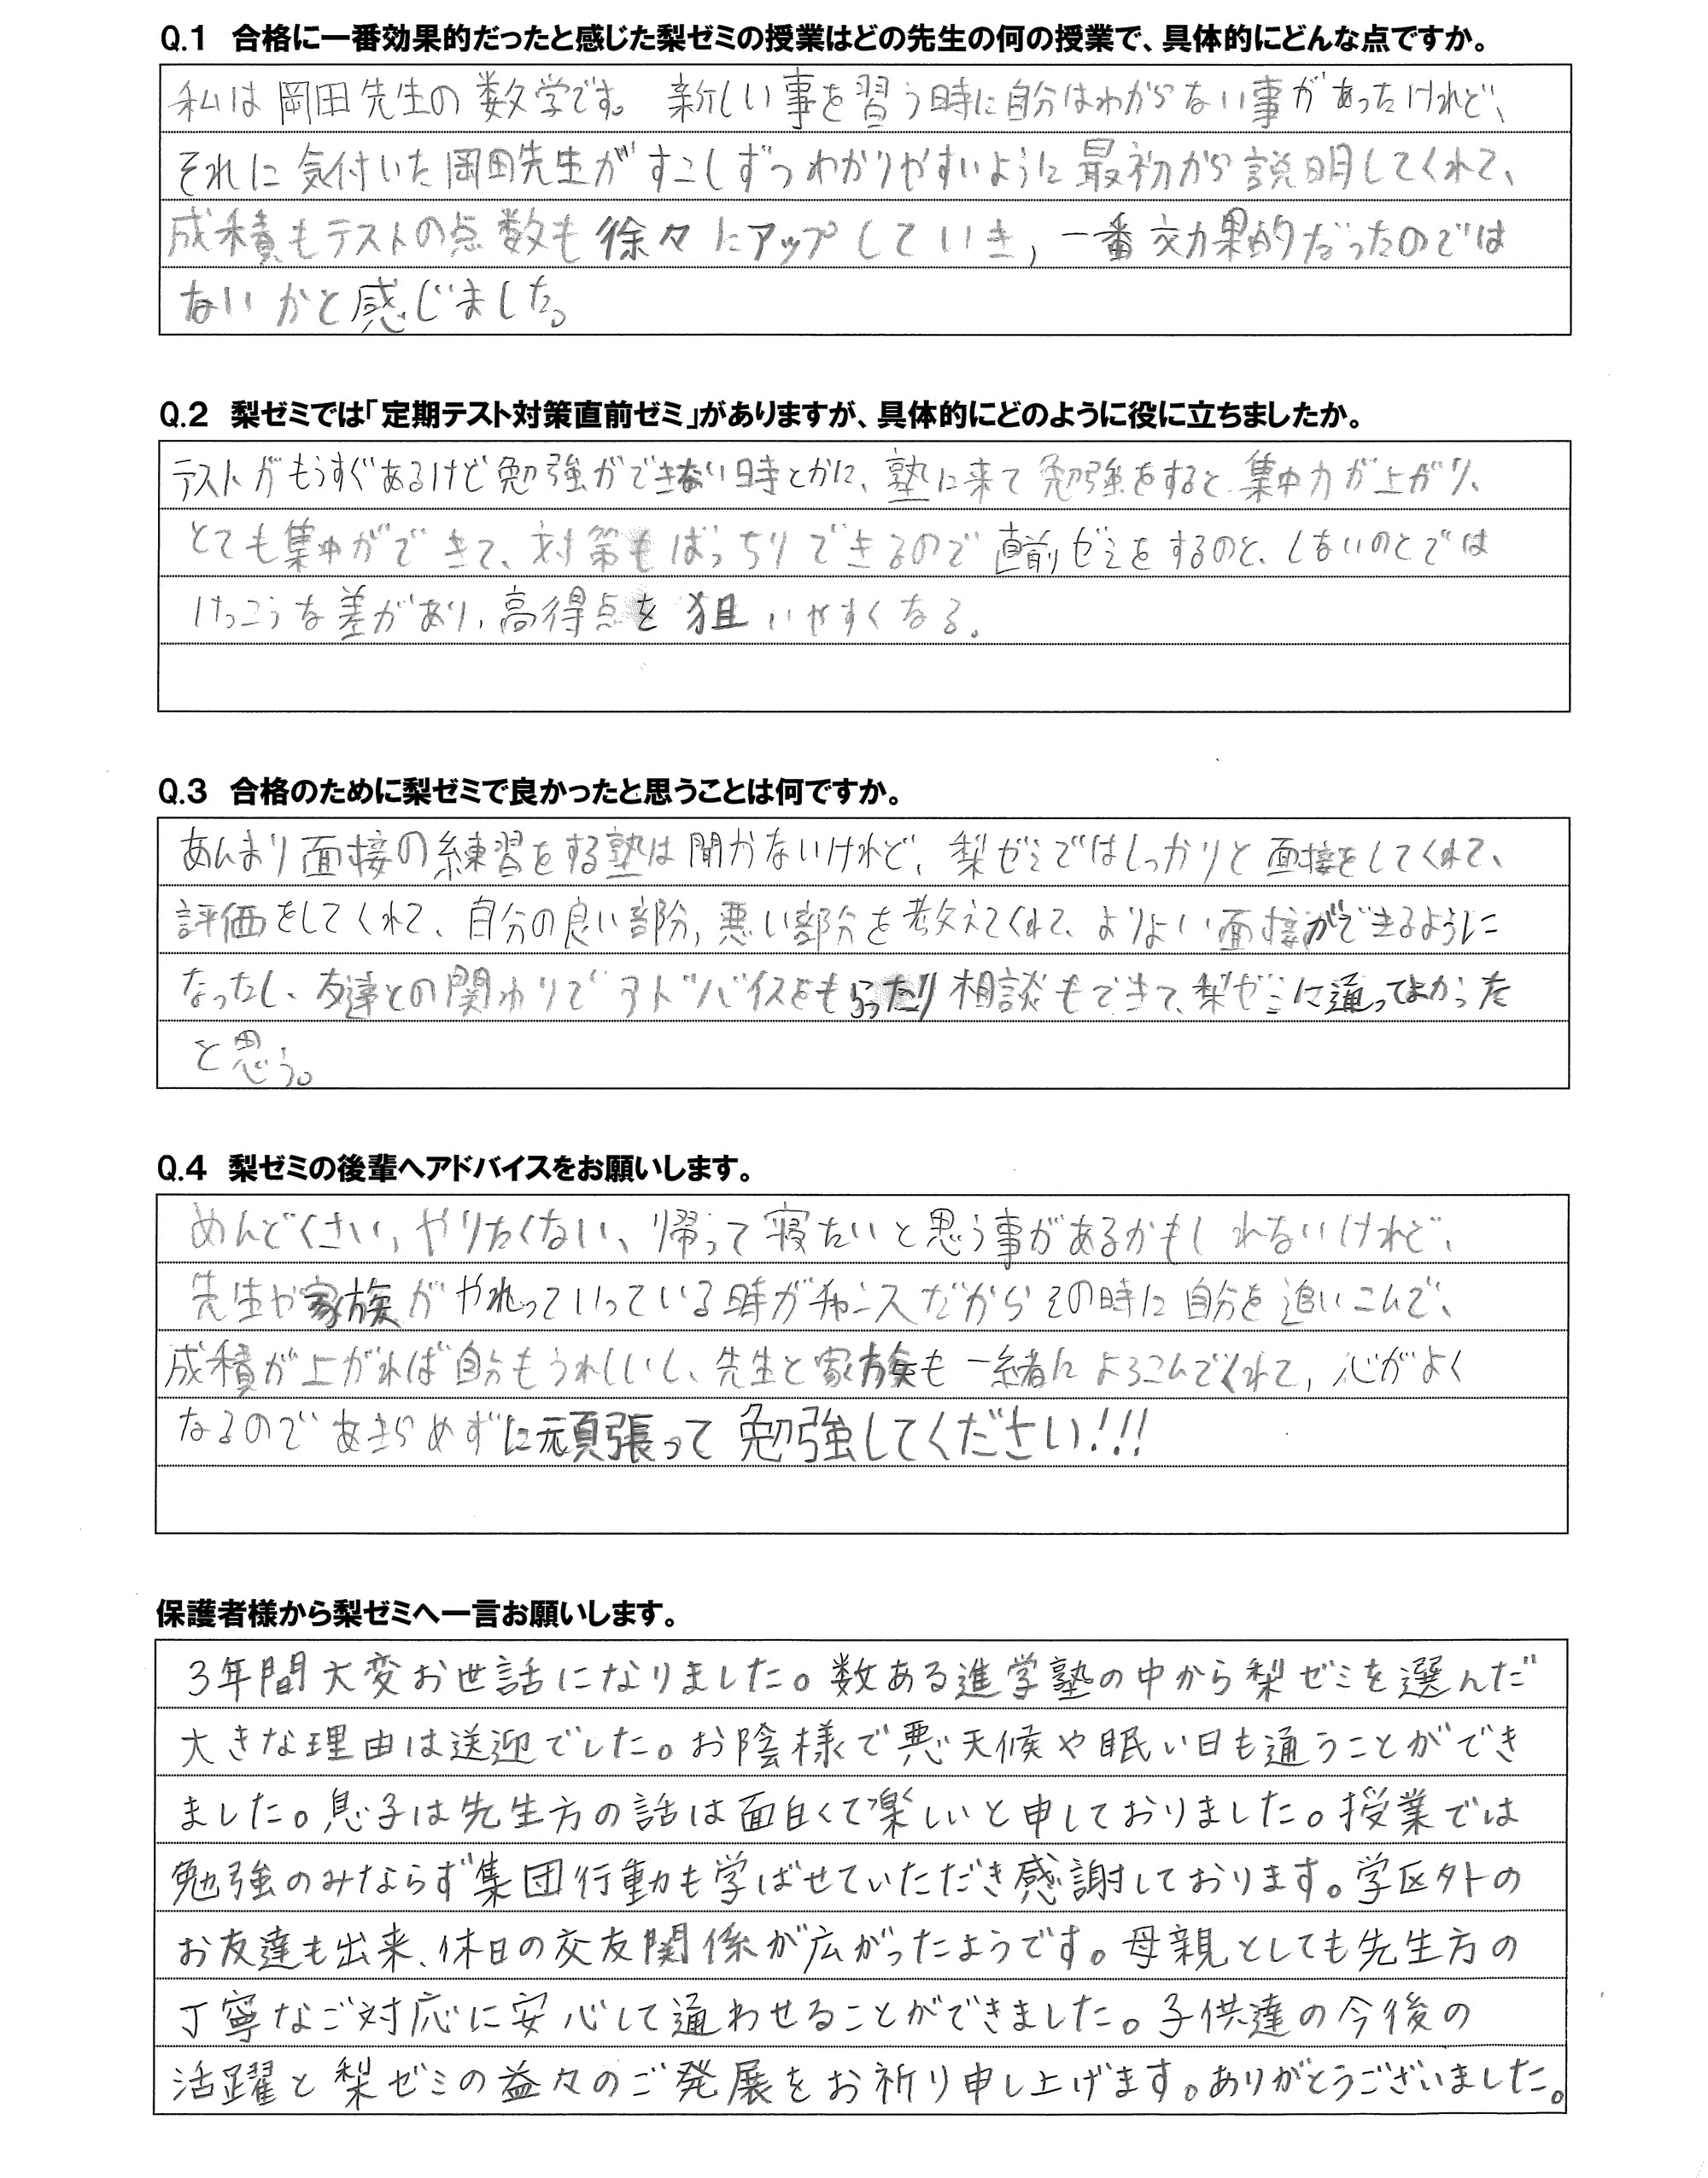 Q.1 合格に一番効果的だったと感じた梨ゼミの授業はどの先生の何の授業で、具体的にどんな点ですか。
私は岡田先生の数学です。新しい事を習う時に自分はわからない事があったけれど、
それに気付いた岡田先生がすこしずつわかりやすいように最初から説明してくれて、
成積もテストの点数も徐々にアップしていき,一番効果的だったのでは
ないかと感じました。
Q.2 梨ゼミでは「定期テスト対策直前ゼミ」がありますが、具体的にどのように役に立ちましたか。
テストがもうすぐあるけど勉強ができない時とかに、塾に来て勉強をすると、集中力が上がり、
とても集中ができて、対策もばっちりできるので直前ゼミをするのと、しないのとでは
けっこうな差があり,高得点を狙いやすくなる。
Q.3 合格のために梨ゼミで良かったと思うことは何ですか。
あんまり面接の練習をする塾は聞かないけれど、梨ゼミではしっかりと面接をしてくれて、
評価をしてくれて、自分の良い部分,悪い部分を教えてくれて、よりよい面接ができるように
なったし、友達との関わりでアドバイスをもらったり相談もできて、梨ゼミに通ってよかった
と思う。
Q.4 梨ゼミの後輩へアドバイスをお願いします。
めんどくさい,やりたくない、帰って寝たいと思う事があるかもしれないけれど、
先生や家族がやれっていっている時がチャンスだからその時に自分を追いこんで、
成積が上がれば自分もうれしいし、先生と家族も一緒によろこんでくれて,心がよく
なるのであきらめずに頑張って勉強してください!!!
保護者様から梨ゼミへ一言お願いします。
3年間大変お世話になりました。数ある進学塾の中から梨ゼミを選んだ
大きな理由は送迎でした。お陰様で悪天候や眠い日も通うことができ
ました。息子は先生方の話は面白くて楽しいと申しておりました。授業では
勉強のみならず集団行動も学ばせていただき感謝しております。学区外の
お友達も出来、休日の交友関係が広がったようです。母親としても先生方の
丁寧なご対応に安心して通わせることができました。子供達の今後の
活躍と梨ゼミの益々のご発展をお祈り申し上げます。ありがとうございました。